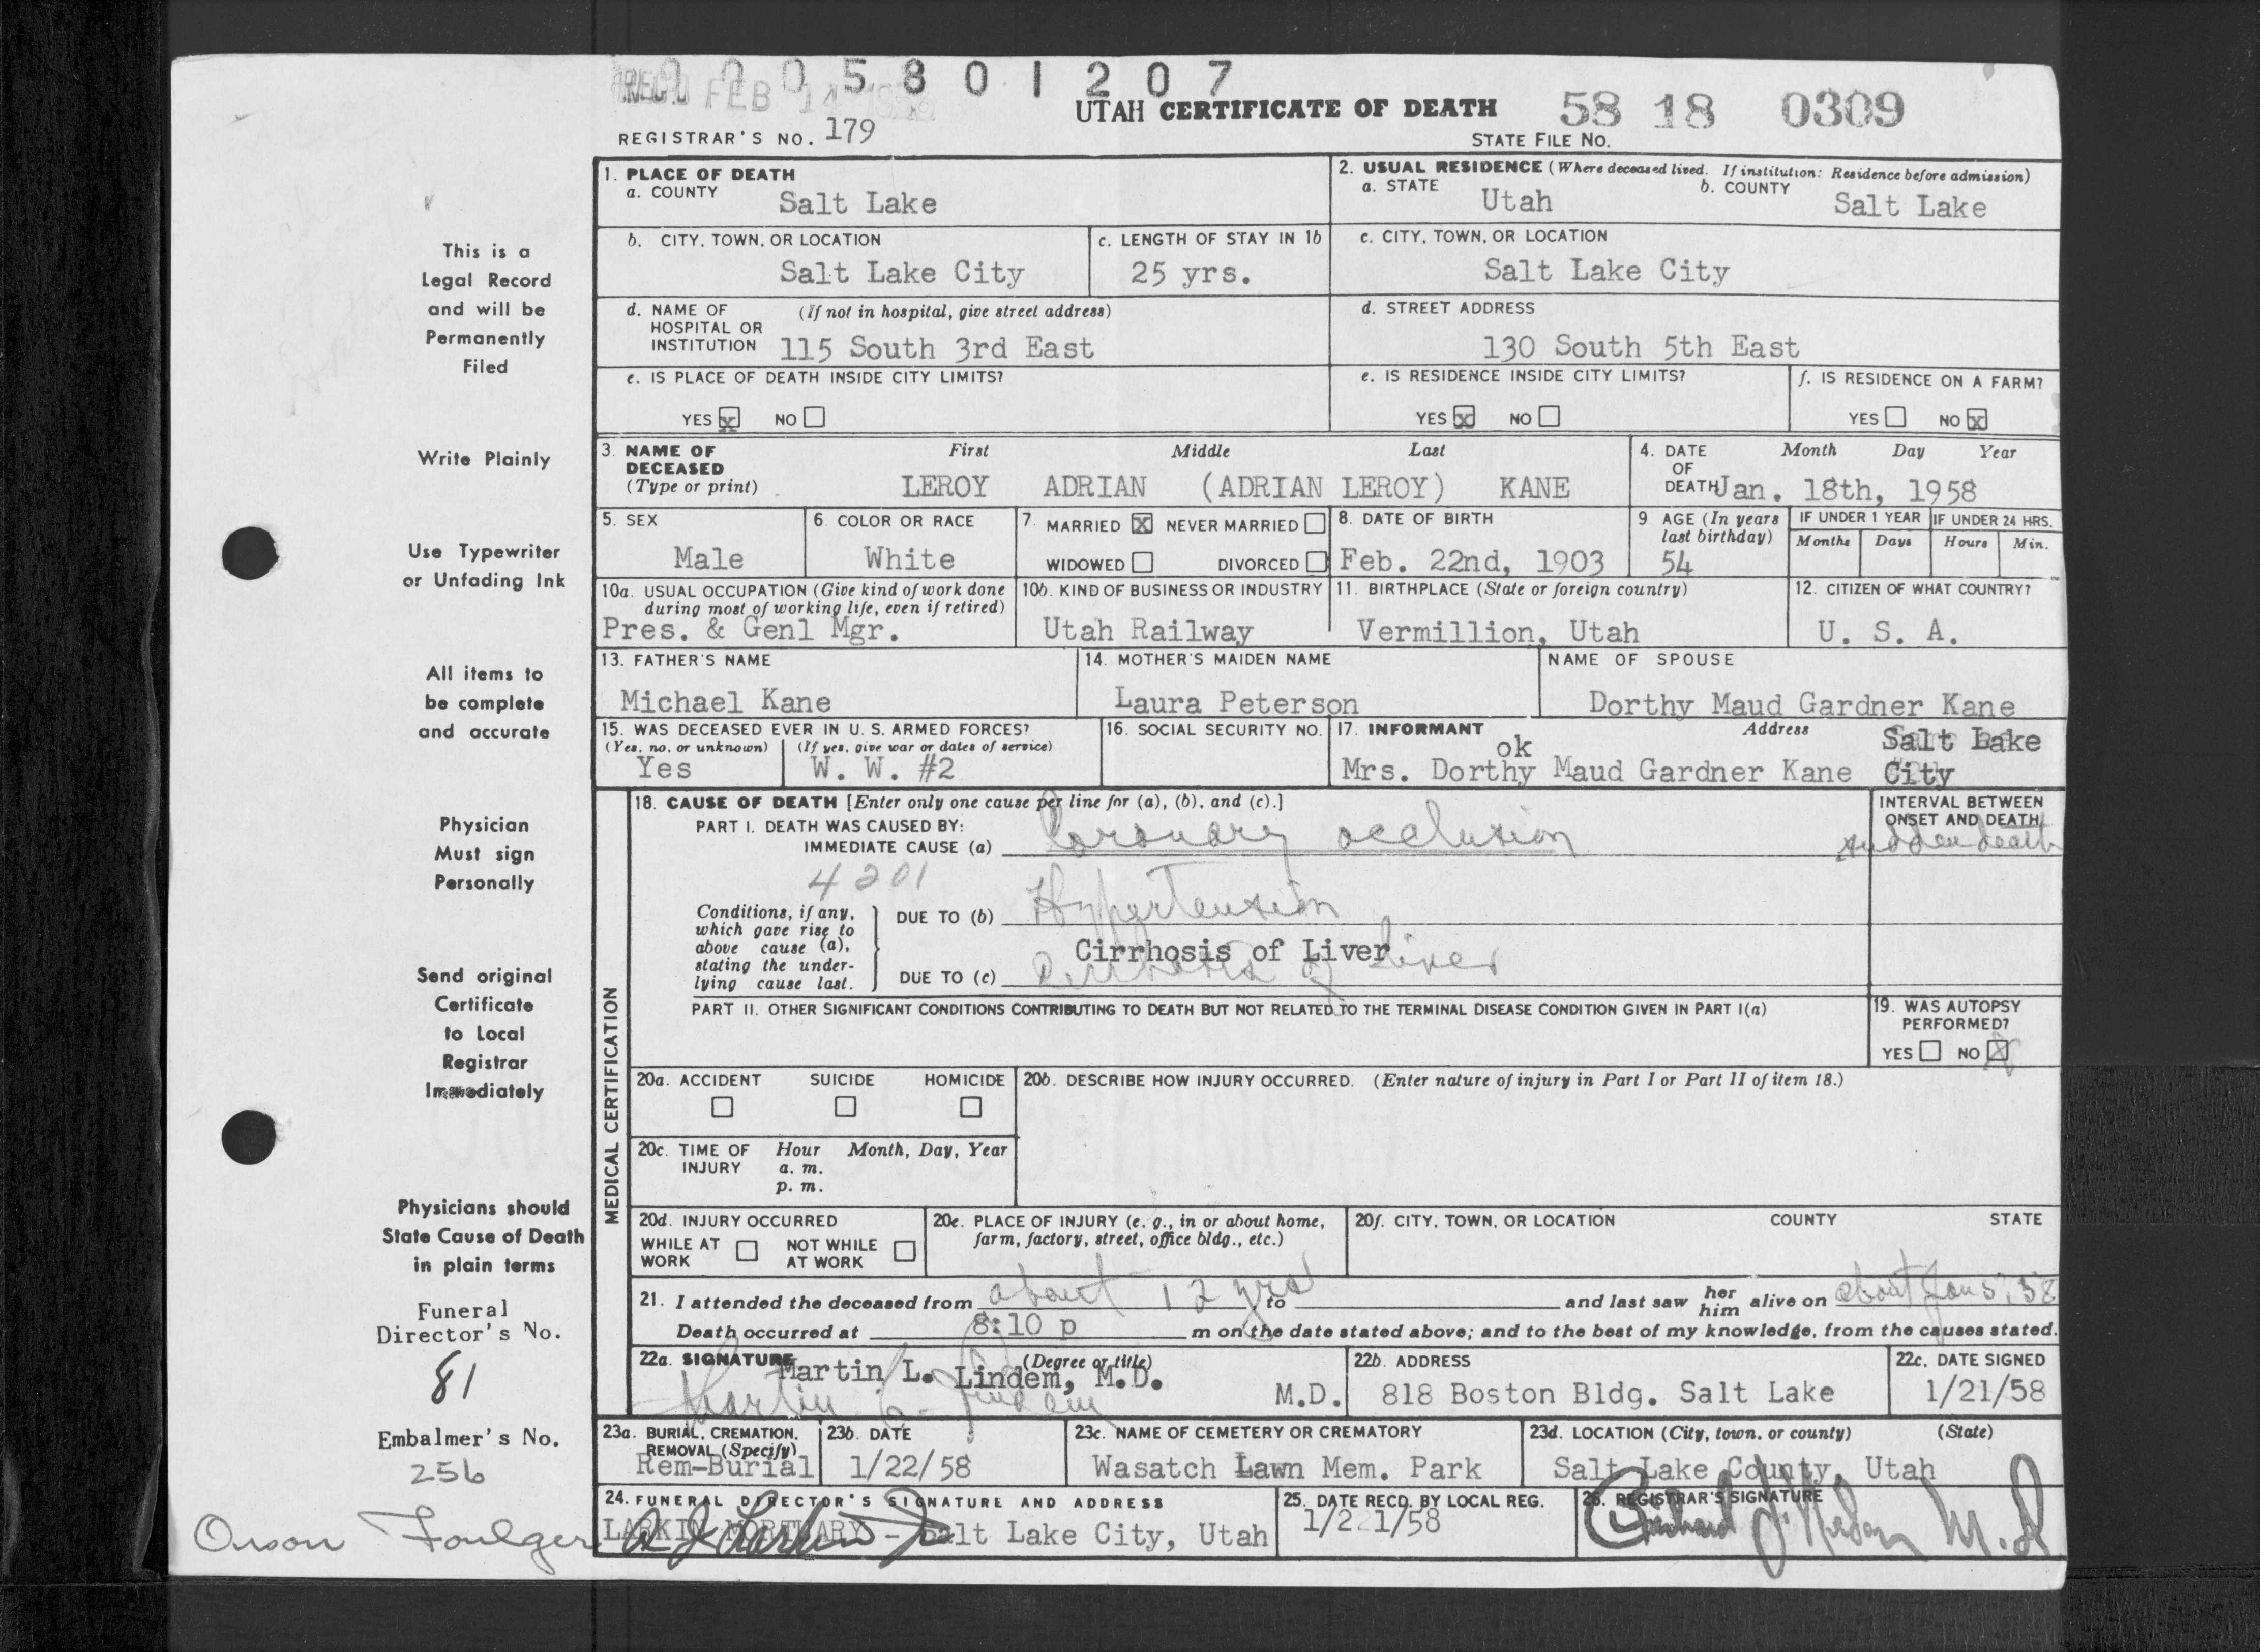 0 0 0 5 8 0 1 2 0 7
REC'D FEB 14
UTAH CERTIFICATE OF DEATH 58 18 0309
REGISTRAR'S NO. 179 STATE FILE NO.
1. PLACE OF DEATH
a. COUNTY Salt Lake
2. USUAL RESIDENCE (Where deceased lived. If institution: Residence before admission)
a. STATE Utah b. COUNTY Salt Lake
b. CITY, TOWN, OR LOCATION Salt Lake City
c. LENGTH OF STAY IN 1b 25 yrs.
c. CITY, TOWN, OR LOCATION Salt Lake City
d. NAME OF HOSPITAL OR INSTITUTION (If not in hospital, give street address) 115 South 3rd East
d. STREET ADDRESS 130 South 5th East
e. IS PLACE OF DEATH INSIDE CITY LIMITS?
YES X NO
e. IS RESIDENCE INSIDE CITY LIMITS?
YES X NO
f. IS RESIDENCE ON A FARM?
YES NO X
3. NAME OF DECEASED (Type or print) First Middle Last
LEROY ADRIAN (ADRIAN LEROY) KANE
4. DATE OF DEATH Month Day Year
Jan. 18th, 1958
5. SEX Male
6. COLOR OR RACE White
7. MARRIED X NEVER MARRIED
WIDOWED DIVORCED
8. DATE OF BIRTH Feb. 22nd, 1903
9 AGE (In years last birthday) 54
IF UNDER 1 YEAR Months Days
IF UNDER 24 HRS. Hours Min.
10a. USUAL OCCUPATION (Give kind of work done during most of working life, even if retired)
Pres. & Genl Mgr.
10b. KIND OF BUSINESS OR INDUSTRY Utah Railway
11. BIRTHPLACE (State or foreign country) Vermillion, Utah
12. CITIZEN OF WHAT COUNTRY? U. S. A.
13. FATHER'S NAME Michael Kane
14. MOTHER'S MAIDEN NAME Laura Peterson
NAME OF SPOUSE Dorthy Maud Gardner Kane
15. WAS DECEASED EVER IN U. S. ARMED FORCES?
(Yes, no, or unknown) (If yes, give war or dates of service)
Yes W. W. #2
16. SOCIAL SECURITY NO.
17. INFORMANT Address
ok
Mrs. Dorthy Maud Gardner Kane Salt Lake City
MEDICAL CERTIFICATION
18. CAUSE OF DEATH [Enter only one cause per line for (a), (b), and (c).]
PART I. DEATH WAS CAUSED BY:
IMMEDIATE CAUSE (a) Coronary occlusion
INTERVAL BETWEEN ONSET AND DEATH
sudden death
4201
Conditions, if any, which gave rise to above cause (a), stating the underlying cause last.
DUE TO (b) Hypertension
Cirrhosis of Liver
DUE TO (c) Cirrhosis of Liver
PART II. OTHER SIGNIFICANT CONDITIONS CONTRIBUTING TO DEATH BUT NOT RELATED TO THE TERMINAL DISEASE CONDITION GIVEN IN PART I(a)
19. WAS AUTOPSY PERFORMED?
YES NO X
20a. ACCIDENT SUICIDE HOMICIDE
20b. DESCRIBE HOW INJURY OCCURRED. (Enter nature of injury in Part I or Part II of item 18.)
20c. TIME OF INJURY Hour Month, Day, Year
a. m.
p. m.
20d. INJURY OCCURRED
WHILE AT WORK NOT WHILE AT WORK
20e. PLACE OF INJURY (e. g., in or about home, farm, factory, street, office bldg., etc.)
20f. CITY, TOWN, OR LOCATION COUNTY STATE
21. I attended the deceased from about 12 yrs to and last saw her him alive on about Jan 5, 58
Death occurred at 8:10 p m on the date stated above; and to the best of my knowledge, from the causes stated.
22a. SIGNATURE (Degree or title)
Martin L. Lindem, M.D.
Martin L. Lindem M.D.
22b. ADDRESS 818 Boston Bldg. Salt Lake
22c. DATE SIGNED 1/21/58
23a. BURIAL, CREMATION, REMOVAL (Specify) Rem-Burial
23b. DATE 1/22/58
23c. NAME OF CEMETERY OR CREMATORY Wasatch Lawn Mem. Park
23d. LOCATION (City, town, or county) (State)
Salt Lake County, Utah
24. FUNERAL DIRECTOR'S SIGNATURE AND ADDRESS
LARKIN MORTUARY - Salt Lake City, Utah
25. DATE RECD. BY LOCAL REG. 1/2 1/58
26. REGISTRAR'S SIGNATURE
M.D.
This is a
Legal Record
and will be
Permanently
Filed
Write Plainly
Use Typewriter
or Unfading Ink
All items to
be complete
and accurate
Physician
Must sign
Personally
Send original
Certificate
to Local
Registrar
Immediately
Physicians should
State Cause of Death
in plain terms
Funeral
Director's No.
81
Embalmer's No.
256
Orson Foulger